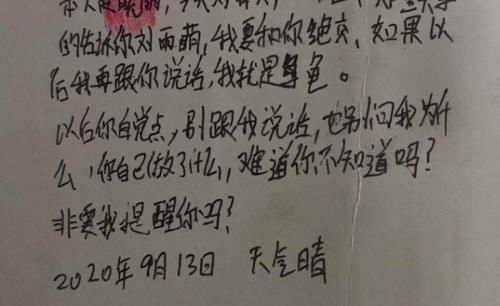 本人
的告诉你刘雨萌,我要和你绝交,如果以
后我再跟你说话,我就是龟。
以后你自觉点,别跟我说话,也别问我为什
么,你自己做了什么,难道你不知道吗?
非要我提醒你吗?
2020年9月13日 天气晴